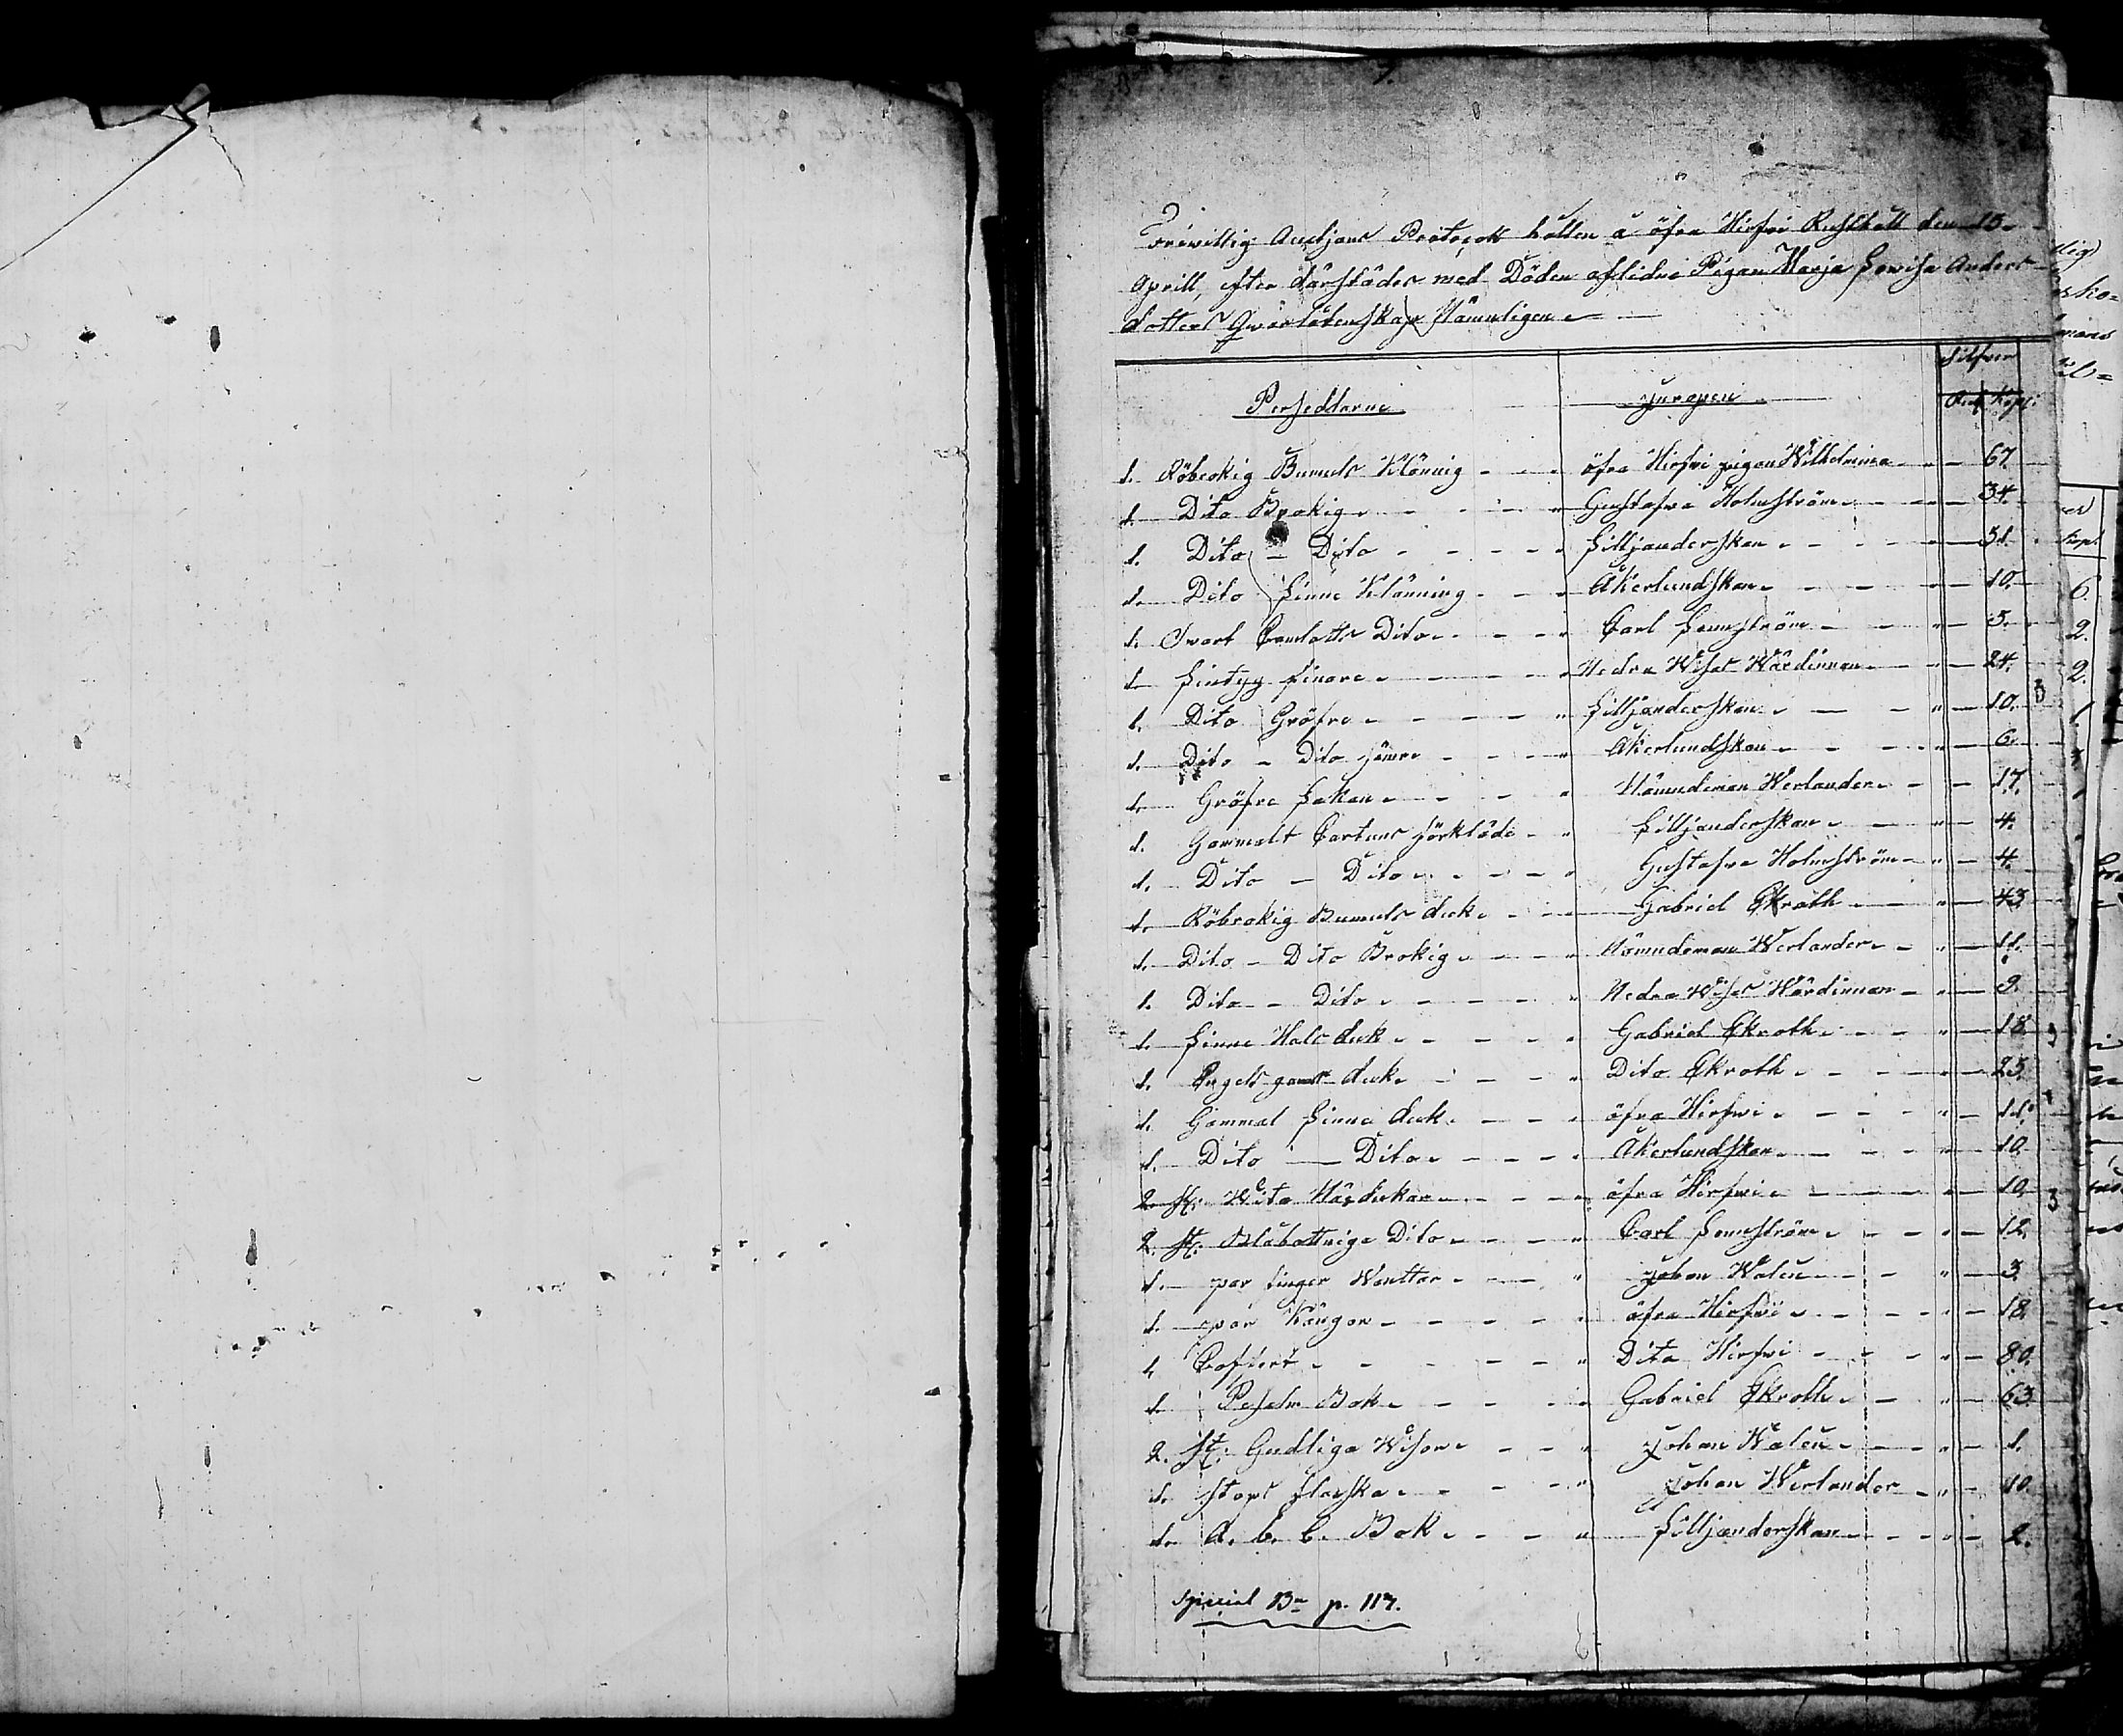 7.
Friwillig Auctjons Protocoll hollen å öfra Hirfwi Rusthåll den 15
Aprill, efter därstädes med Döden aflidne Pigan Marja Lowisa Anders-
dotters Qwarlåtenskap Nämnligen
Persedlarne Inropen Silfver
Rub Kop:
1. Röbrokig Bumuls Klännig öfra Hirfwi pigan Wilhelmina 67.
1. Dito Brokig Gustafva Holmström 34.
1. Dito Dito Silljanderskan 51.
1. Dito Linne Klänning Åkerlundskan 10.
1. Swart Camlotts Dito Carl Lennström 5.
1. Lintyg finare Nedra Wisas Wärdinnan 24.
1. Dito Gröfre Silljanderskan 10.
1. Dito Dito sämre Åkerlundskan 6.
1. Gröfre Lakan Nämndeman Werlander 17.
1. Gammalt Cartuns förkläde Silljanderskan 4.
1. Dito Dito Gustafva Holmström 4.
1. Röbrokig Bumuls duk Gabriel Ekroth 43.
1. Dito Dito Brokig Nämndeman Werlander 11.
1. Dito Dito Nedra Wisas Wärdinnan 9.
1. Linne Hals duk Gabriel Ekroth 18.
1. Engels garns duk Dito Ekroth 25.
1. Gammal Linne duk öfra Hirfwi 11.
1. Dito Dito Åkerlundskan 10.
2. St: Wita Näsdukar öfra Hirfwi 10.
2. St: Blåbottnige Dito Carl Lennström 12.
1. par finger Wanttar Johan Walen 3.
1. par Kängor öfra Hirfwi 18.
1. Coffert Dito Hirfwi 80.
1. Psalm Bok Gabriel Ekroth 63.
2. St: Gudliga Wisor Johan Walen 1.
1. Stops flaska Johan Werlander 10.
1. A. b. c. Bok Silljanderskan 2.
Special Bn p. 117.